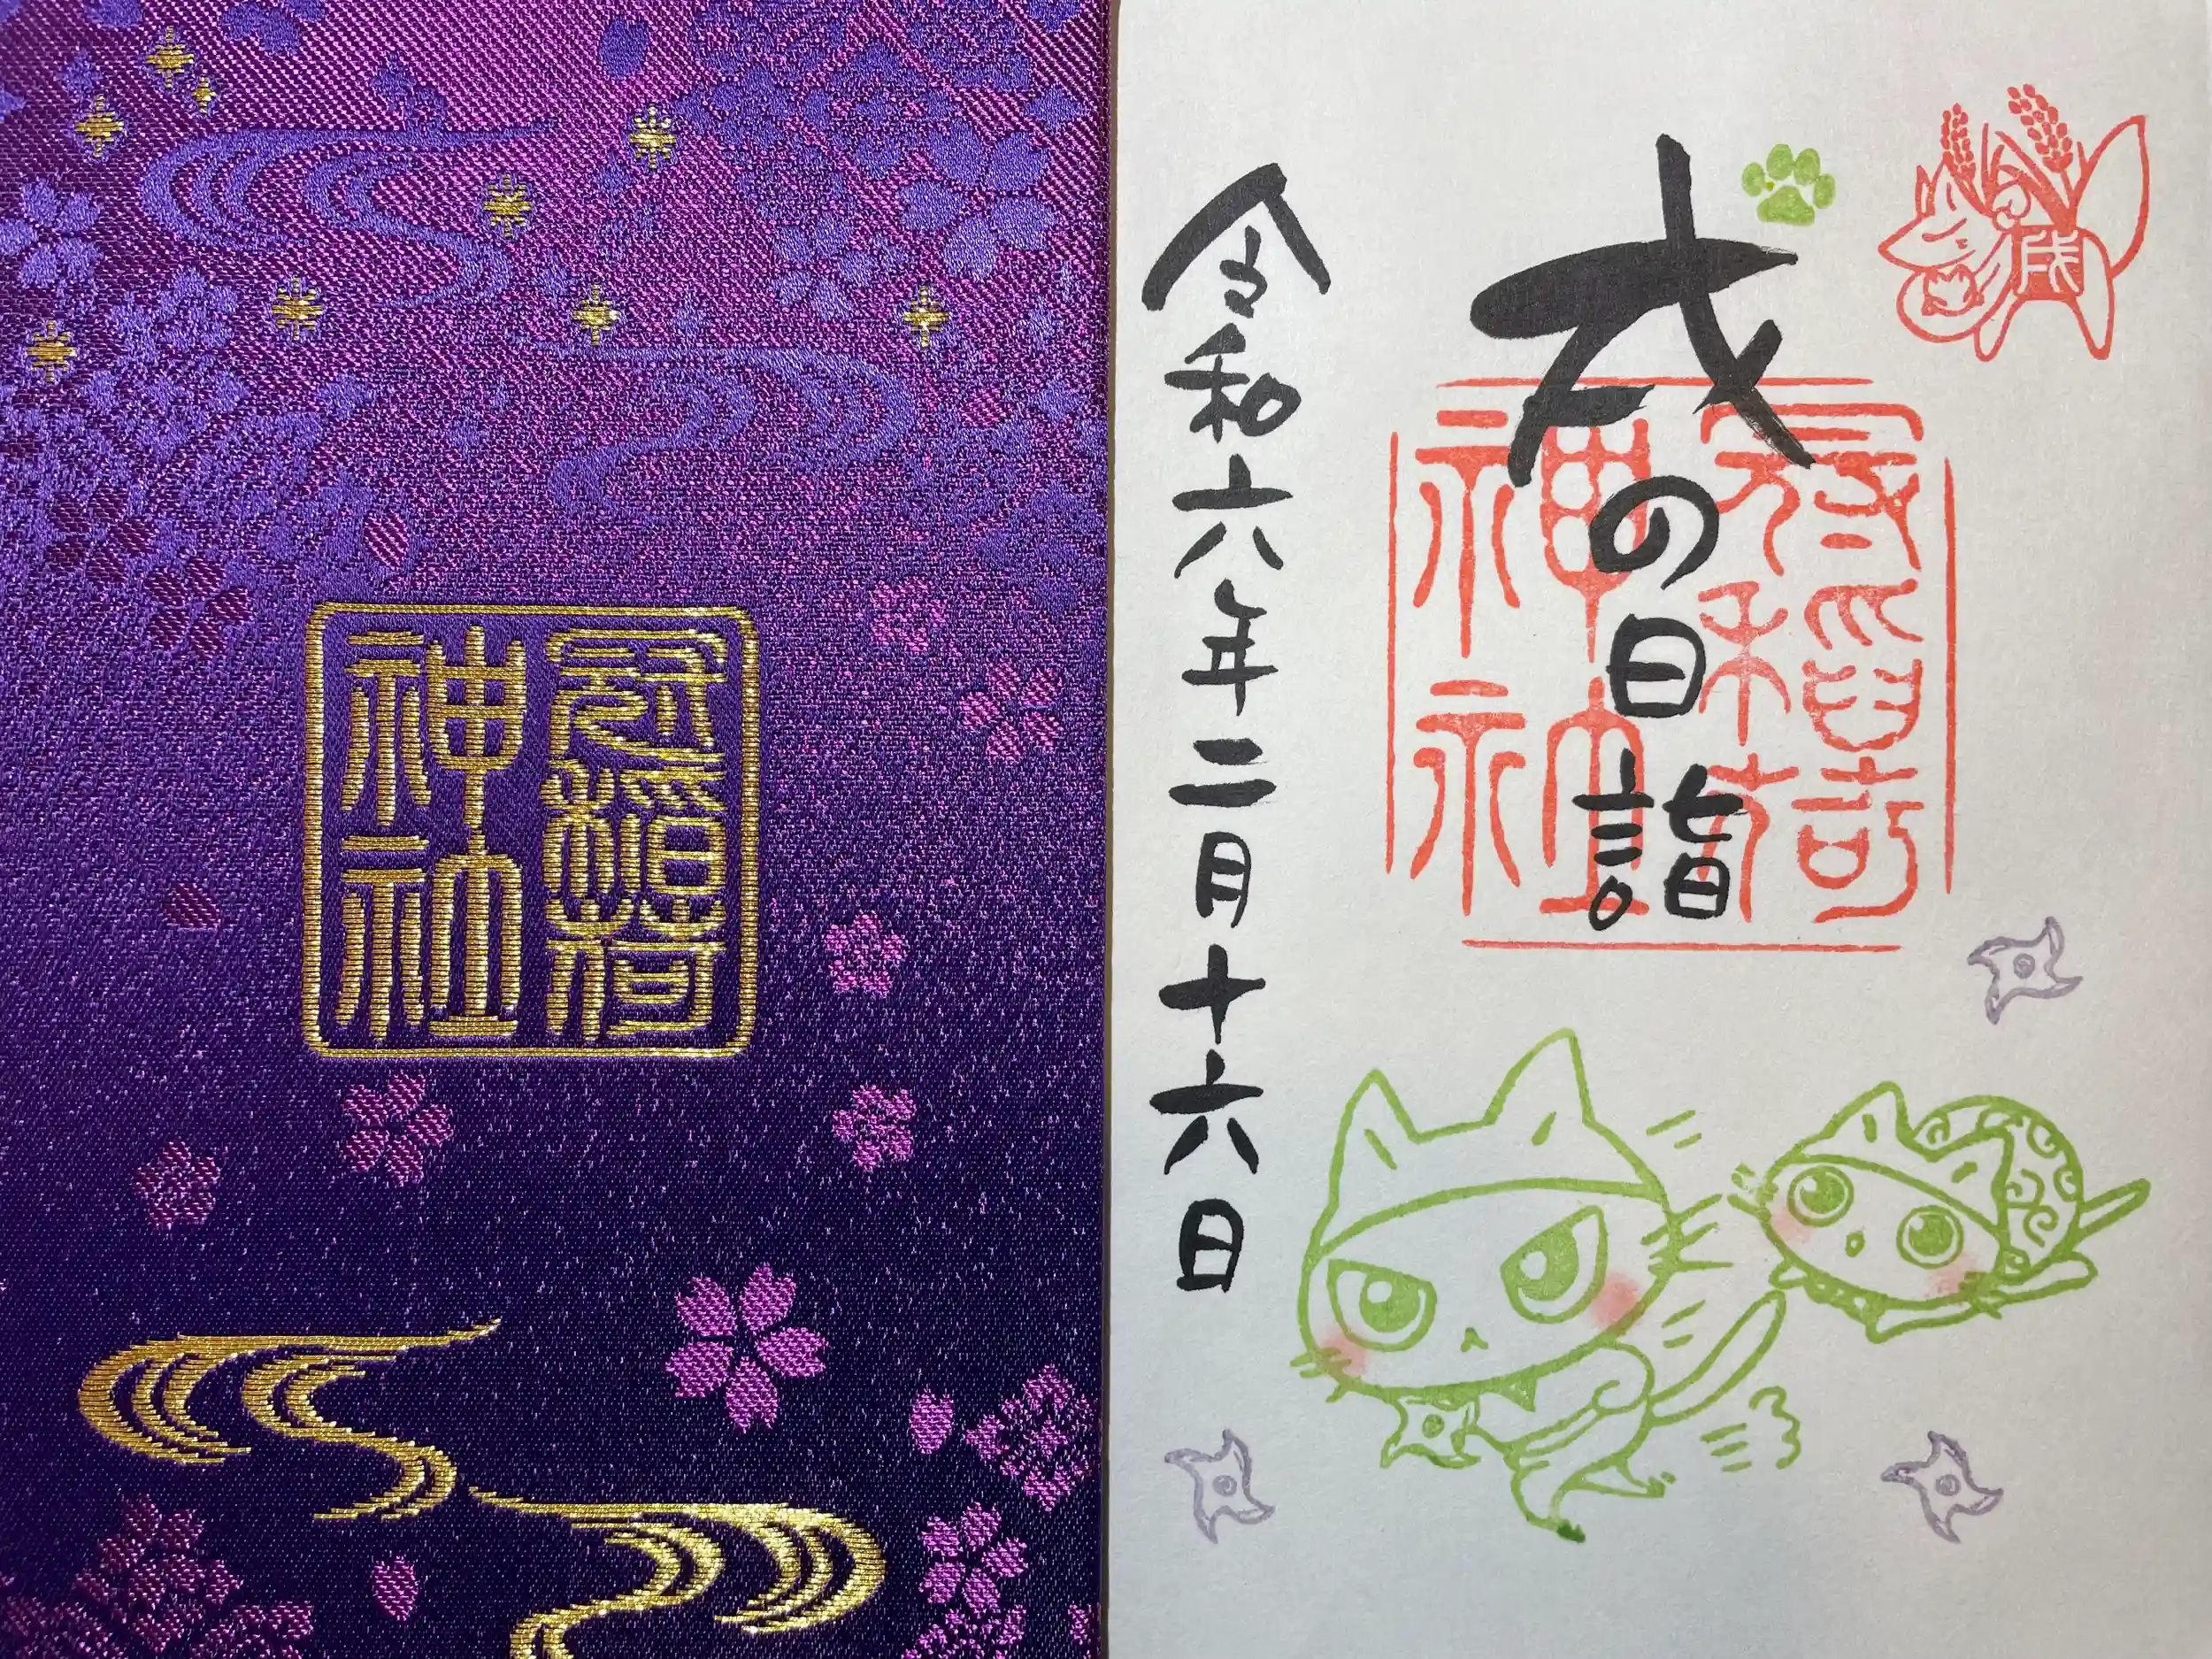 冠稲荷
神社
戌の日詣
戌
冠稲荷
神社
令和六年二月十六日